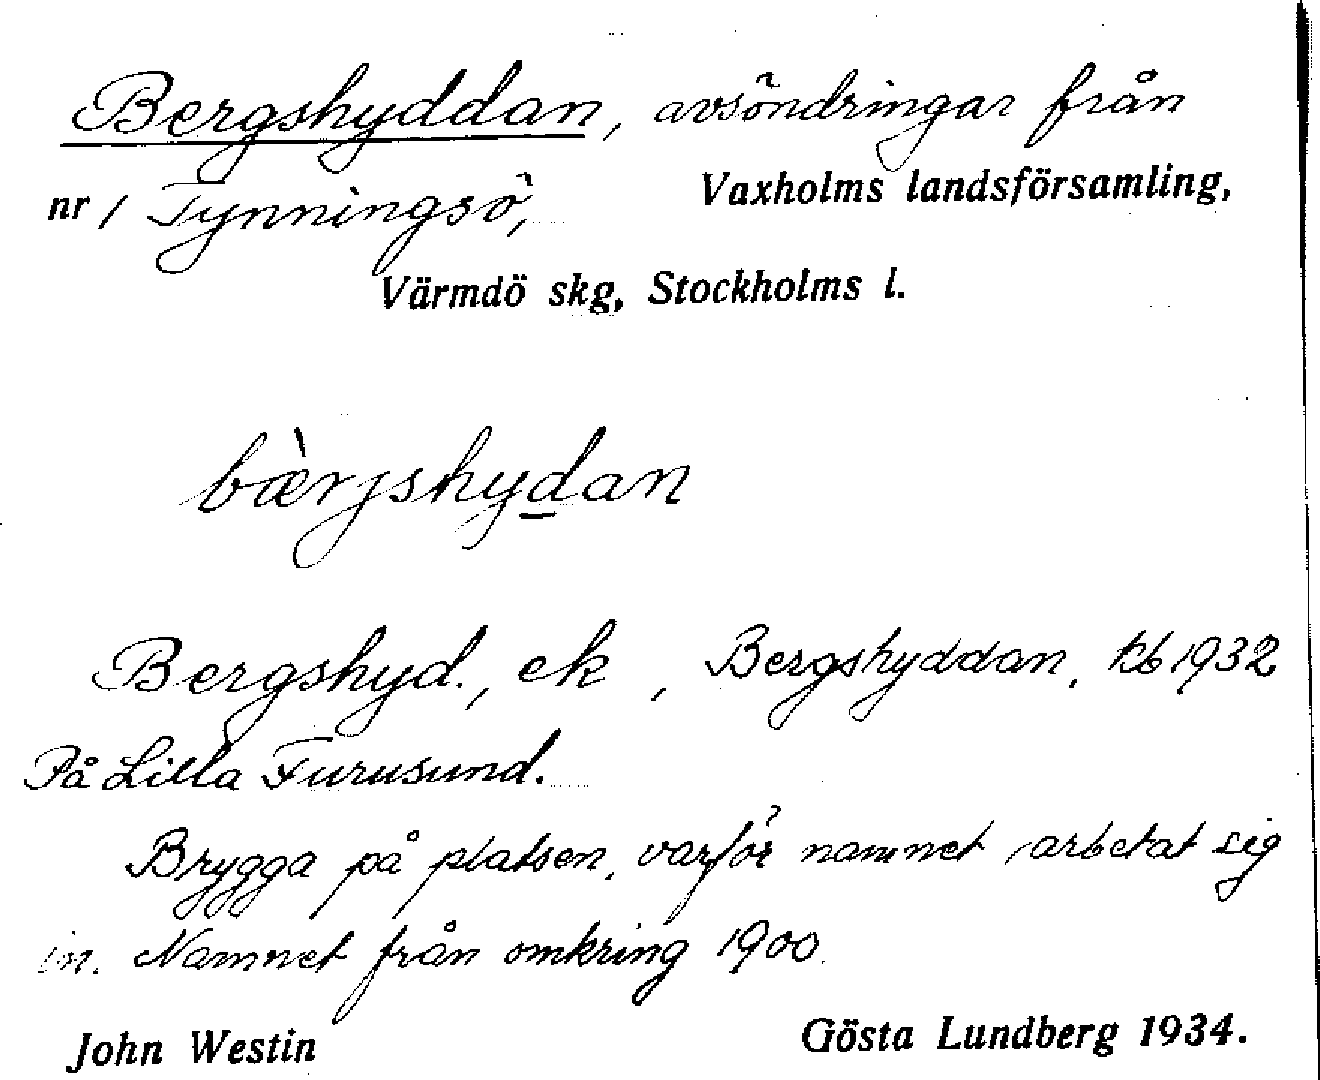 Bergshyddan, avsöndringar från
nr 1 Tynningsö, Vaxholms landsförsamling,
Värmdö skg, Stockholms l.
bæ̀rjshydan
Bergshyd., ek , Bergshyddan, kb 1932
På Lilla Furusund.
Brygga på platsen, varför namnet arbetat sig
in. Namnet från omkring 1900.
John Westin Gösta Lundberg 1934.